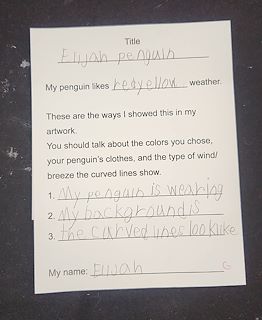 Title
Elijah penguin
My penguin likes redyellow weather.
These are the ways I showed this in my
artwork.
You should talk about the colors you chose,
your penguin's clothes, and the type of wind/
breeze the curved lines show.
1. My penguin is wearing
2. My background is
3. the curved lines look like
My name: Elijah G